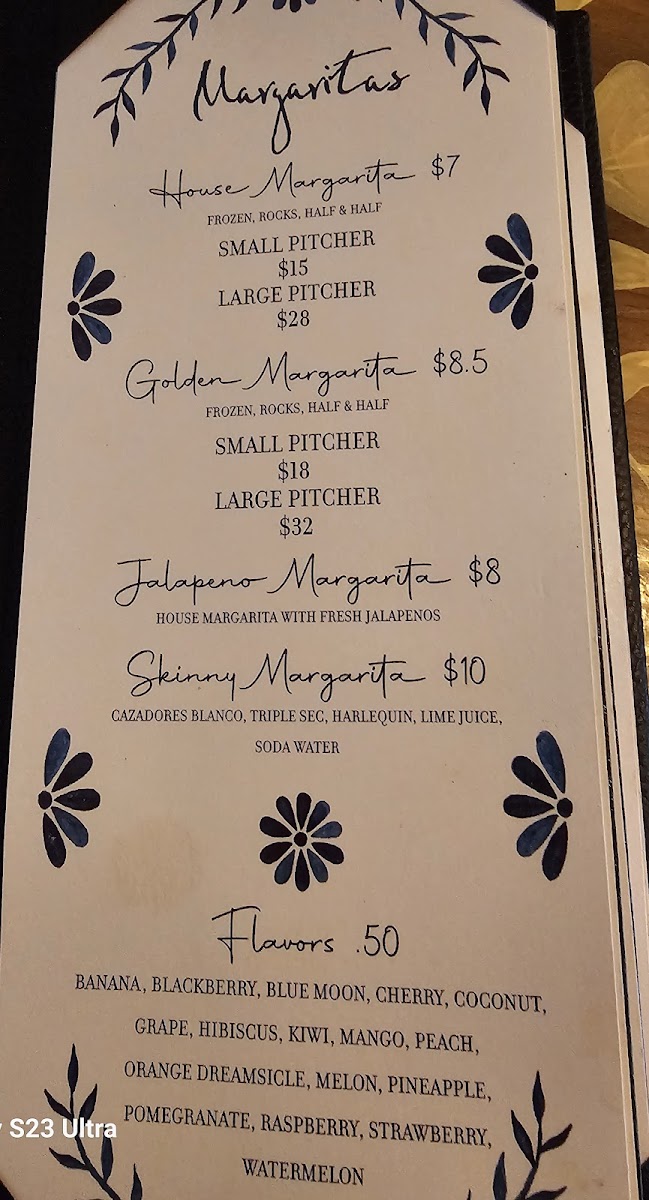 Margaritas
House Margarita $7
FROZEN, ROCKS, HALF & HALF
SMALL PITCHER
$15
LARGE PITCHER
$28
Golden Margarita $8.5
FROZEN, ROCKS, HALF & HALF
SMALL PITCHER
$18
LARGE PITCHER
$32
Jalapeno Margarita $8
HOUSE MARGARITA WITH FRESH JALAPENOS
Skinny Margarita $10
CAZADORES BLANCO, TRIPLE SEC, HARLEQUIN, LIME JUICE,
SODA WATER
Flavors .50
BANANA, BLACKBERRY, BLUE MOON, CHERRY, COCONUT,
GRAPE, HIBISCUS, KIWI, MANGO, PEACH,
ORANGE DREAMSICLE, MELON, PINEAPPLE,
POMEGRANATE, RASPBERRY, STRAWBERRY,
WATERMELON
S23 Ultra